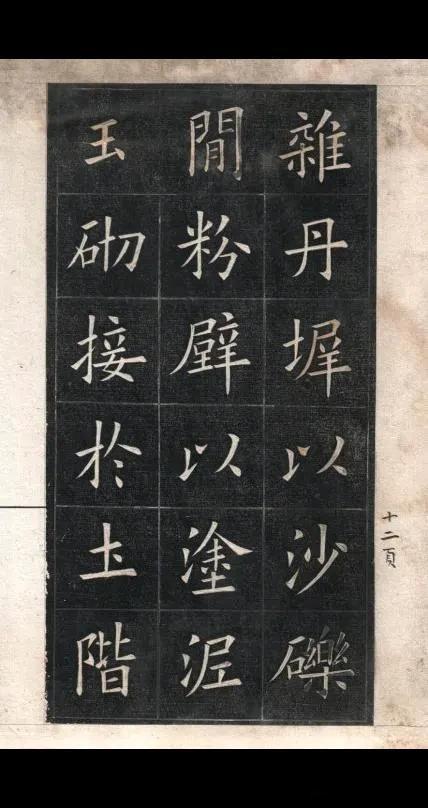 雜丹墀以沙礫
閒粉壁以塗泥
玉砌接於土階
十二頁